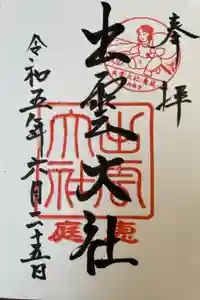 奉拝
出雲大社
令和五年六月二十五日
出雲
大社
恵庭